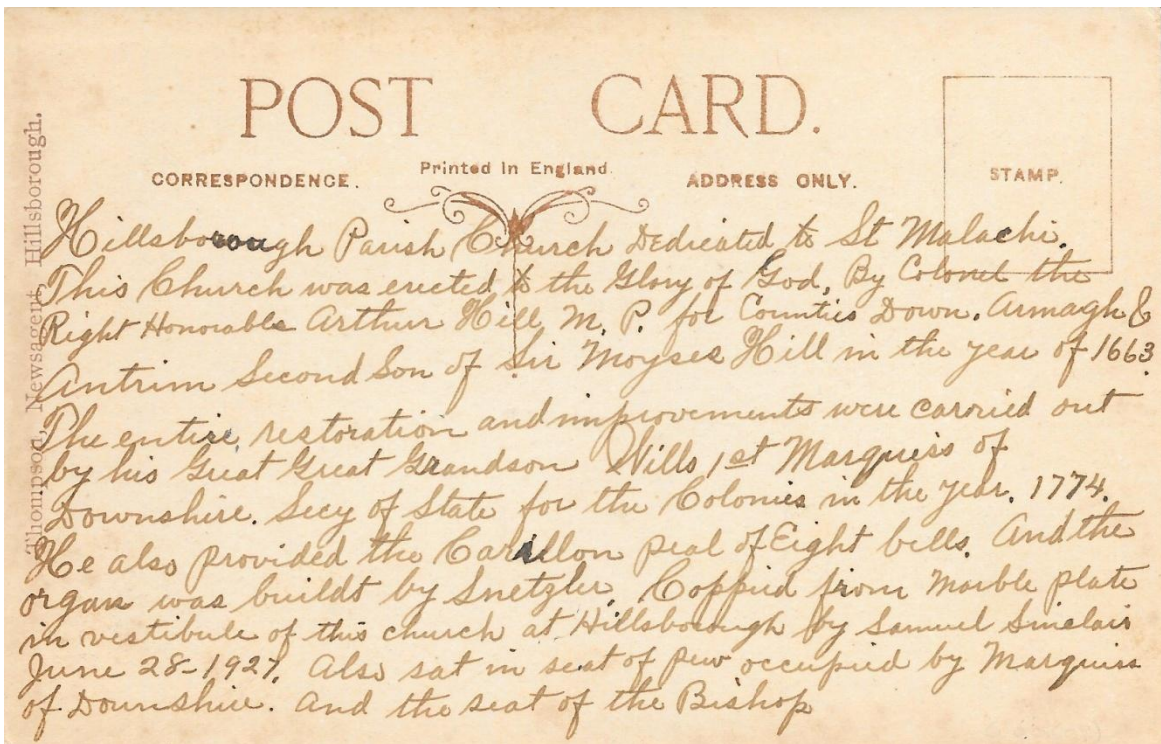 POST CARD.
Printed in England.
CORRESPONDENCE.
ADDRESS ONLY.
STAMP.
Thompson, Newsagent, Hillsborough.
Hillsborough Parish Church Dedicated to St Malachi.
This Church was erected to the Glory of God, By Colonel the
Right Honorable Arthur Hill, M. P. for Counties Down. Armagh &
Antrim Second Son of Sir Moyses Hill in the year of 1663.
The entire restoration and improvements were carried out
by his Great Great Grandson Wills 1st Marquiss of
Downshire. Secy of State for the Colonies in the year. 1774.
He also provided the Carillon peal of Eight bells. And the
organ was buildt by Snetzler. Coppied from Marble plate
in vestibule of this church at Hillsborough by Samuel Sinclair
June 28-1927. Also sat in seat of pew occupied by Marquiss
of Downshire. And the seat of the Bishop